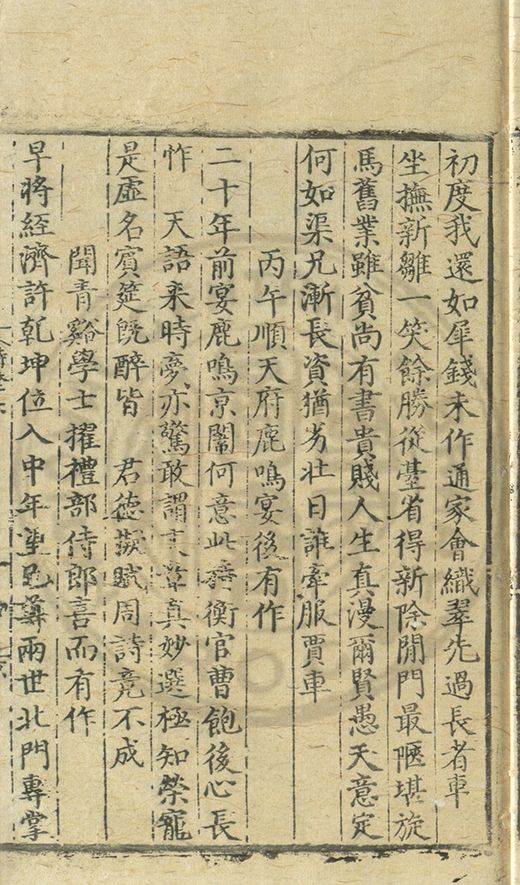 初度我還如犀錢未作通家會織翠先過長者車
坐撫新雛一笑餘勝從臺省得新除閒門最陋堪旋
馬舊業雖貧尚有書貴賤人生真漫爾賢愚天意定
何如渠兄漸長資猶劣壯日誰牽服賈車
丙午順天府鹿鳴宴後有作
二十年前宴鹿鳴京闈何意此持衡官曹飽後心長
怍 天語来時夢亦驚敢謂文章真妙選極知榮寵
是虛名賓筵既醉皆 君德載賦周詩竟不成
聞青谿學士擢禮部侍郎喜而有作
早將經濟許乾坤位入中年望已尊兩世北門專掌